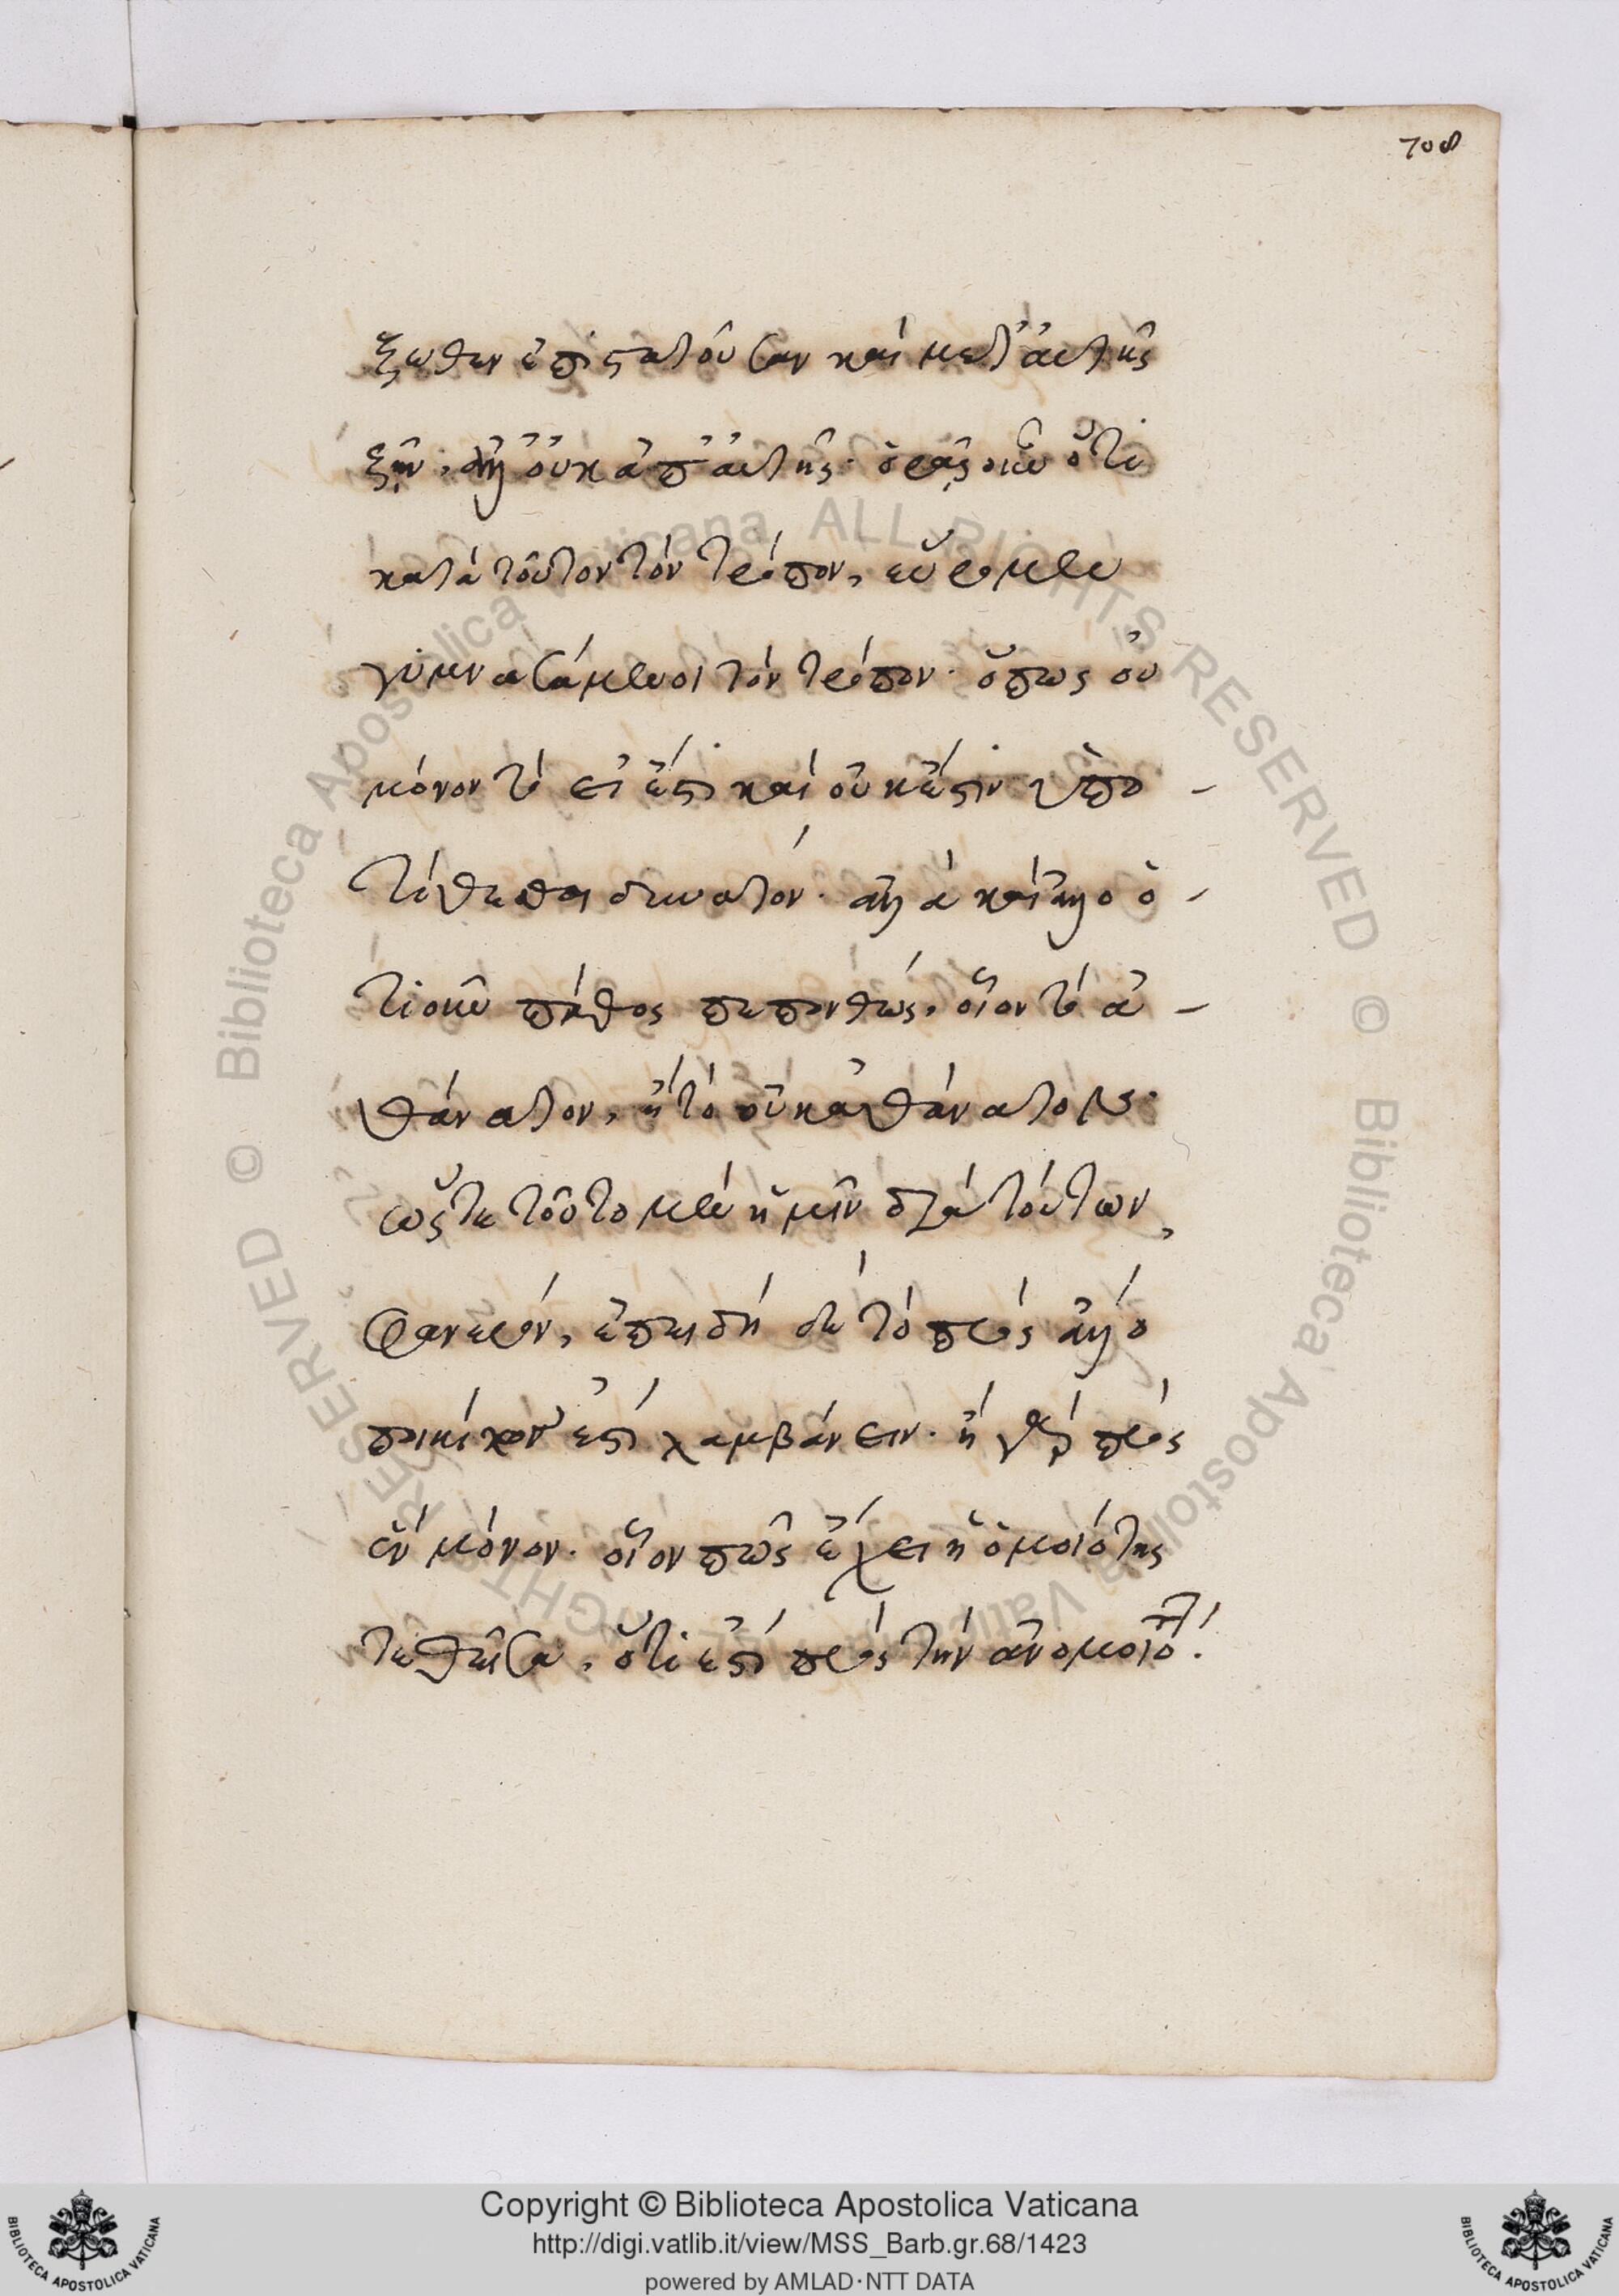 708
ξωθεν ἐπιστατοῦσαν καὶ μετ' αὐτῆς
ζῆν, ἀλλ' οὐκ ἀπ' αὐτῆς· ὁρᾷς οὖν ὅτι
κατὰ τοῦτον τὸν τρόπον, εὕρομεν
γυμνασάμενοι τὸν τρόπον· ὅπως οὐ
μόνον τὸ εἰ ἔστι καὶ οὐκ ἔστιν ὑπο -
τίθεσθαι δυνατόν· ἀλλὰ καὶ ἄλλο ὁ -
τιοῦν πάθος πεπονθώς, οἷον τὸ ἀ -
θάνατον, ἢ τὸ οὐκ ἀθάνατον·
ὥστε τοῦτο μὲν ἡμῖν διὰ τούτων,
φανερόν, ἐπειδὴ δὲ τὸ πρὸς ἄλλο
ποικίλον ἐστὶ λαμβάνειν· ἢ γὰρ πρὸς
ἓν μόνον· οἷον πῶς ἔχει ἡ ὁμοιότης
τεθεῖσα, ὅτι ἐστὶ πρὸς τὴν ἀνομοιότ.
Copyright © Biblioteca Apostolica Vaticana
http://digi.vatlib.it/view/MSS_Barb.gr.68/1423
powered by AMLAD·NTT DATA
BIBLIOTECA APOSTOLICA VATICANA
BIBLIOTECA APOSTOLICA VATICANA
© Biblioteca Apostolica Vaticana ALL RIGHTS RESERVED
© Biblioteca Apostolica Vaticana ALL RIGHTS RESERVED